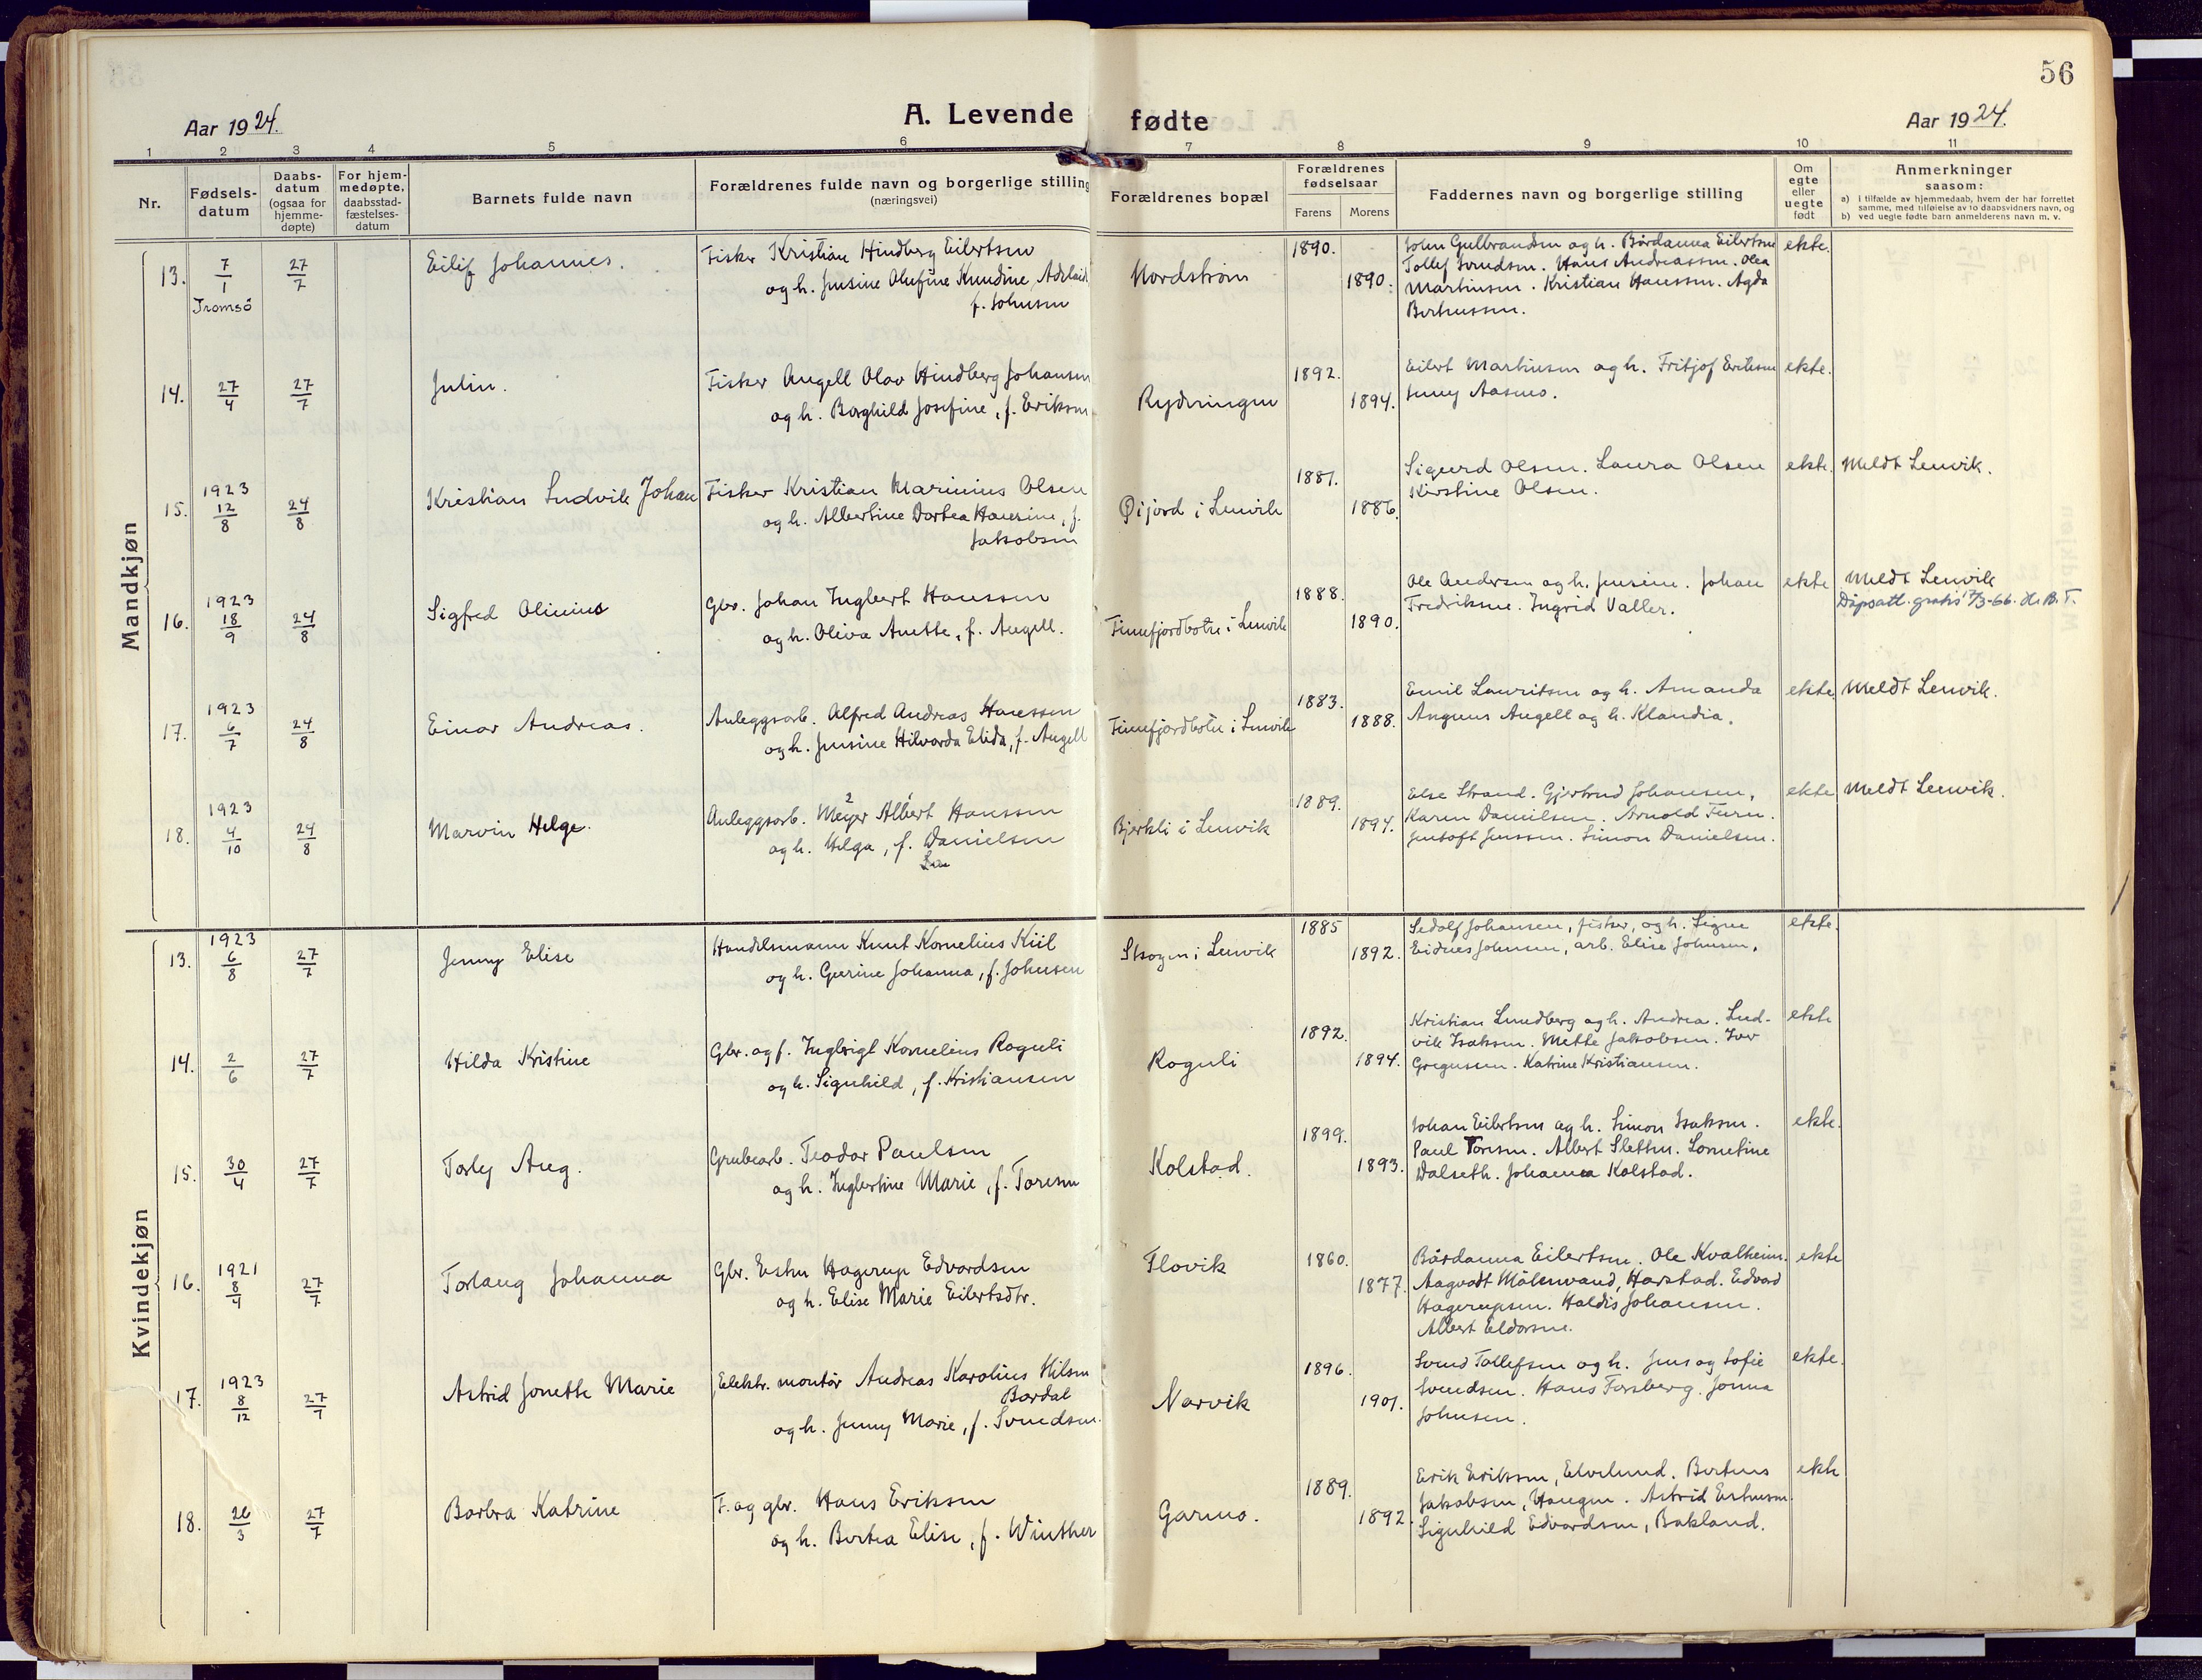 56
A. Levende fødte
Aar 1924.
Aar 1924.
1 2 3 4 5 6 7 8 9 10 11
Nr.
Fødsels-
datum
Daabs-
datum
(ogsaa for
hjemme-
døpte)
For hjem-
medøpte,
daabsstad-
fæstelses-
datum
Barnets fulde navn
Forældrenes fulde navn og borgerlige stilling
(næringsvei)
Forældrenes bopæl
Forældrenes
fødselsaar
Farens
Morens
Faddernes navn og borgerlige stilling
Om
egte
eller
uegte
født
Anmerkninger
saasom:
a) i tilfælde av hjemmedaab, hvem der har forrettet
samme, med tilføielse av to daabsvidners navn, og
b) ved uegte fødte barn anmelderens navn m. v.
Mandkjøn
13. 7/1 27/7
Tromsö
Eilif Johannes.
Fisker Kristian Hindberg Eilertsen
og h. Jensine Olufine Knudine Adelaid
f. Johnsen
Nordstrøm
1890.
1890.
John Gulbrandsen og h. Bårdanna Eilertsen
Tollef Svendsen. Hans Andreassen. Olea
Martinsen. Kristian Hanssen. Agda
Berthussen.
ekte.
14. 27/4 27/7
Julin.
Fisker Angell Olav Hindberg Johansen
og h. Borghild Josefine, f. Eriksen
Rydningen
1892.
1894.
Eilert Martinsen og h. Fritjof Eriksen
Jenny Aasmo.
ekte.
15. 1923 12/8 24/8
Kristian Ludvik Johan
Fisker Kristian Marinius Olsen
og h. Albertine Dortea Hansine, f.
Jakobsen
Øijord i Lenvik
1881.
1886.
Sigurd Olsen. Laura Olsen
Kirstine Olsen.
ekte.
Meldt Lenvik.
16. 1923 18/9 24/8
Sigfred Olinius
Gbr. Johan Ingbert Hanssen
og h. Oliva Anette, f. Angell.
Finnfjordbotn i Lenvik
1888.
1890.
Ole Andersen og h. Jensine. Johan
Fredriksen. Ingrid Valler.
ekte
Meldt Lenvik
Dåpsatt. gratis 17/3-66. H. B. T.
17. 1923 6/7 24/8
Einar Andreas.
Anleggsarb. Alfred Andreas Hanssen
og h. Jensine Hilvarda Elida, f. Angell
Finnfjordbotn i Lenvik
1883.
1888.
Emil Lauritsen og h. Amanda
Angell og h. Klandia.
ekte
Meldt Lenvik.
18. 1923 4/10 24/8
Marvin Helge.
Anleggsarb. Meyer Albert Hanssen
og h. Helga, f. Danielsen
Bjerkli i Lenvik
1889.
1894.
Else Strand. Gjertrud Johansen,
Karen Danielsen. Arnold Furn.
Jentoft Jenssen. Simon Danielsen.
ekte
Meldt Lenvik.
Kvindekjøn
13. 1923 6/8 27/7
Jenny Elise
Handelsmann Knut Kornelius Kiil
og h. Gurine Johanna, f. Johnsen
Skogen i Lenvik
1885
1892.
Sedolf Johansen, fisker, og h. Signe
Eidnes Johnsen, arb. Elise Johnsen.
ekte.
14. 2/6 27/7
Hilda Kristine
Gbr. og f. Ingbrigt Kornelius Roguli
og h. Signhild, f. Kristiansen
Roguli
1892.
1894.
Kristian Lundberg og h. Andrea. Lud-
vik Isaksen. Mette Jakobsen. Ivar
Gregussen. Katrine Kristiansen.
ekte
15. 30/4 27/7
Torly Aug.
Grubearb. Teodor Paulsen
og h. Ingbertine Marie, f. Toresen
Kolstad.
1899.
1893.
Johan Eilertsen og h. Simon Isaksen.
Paul Toresen. Albert Sletten. Lorentine
Dalseth. Johanna Kolstad.
ekte.
16. 1921 8/4 27/7
Torlaug Johanna
Gbr. Esten Hagerup Edvardsen
og h. Elise Marie Eilertsdtr.
Flovik
1860.
1877.
Bårdanna Eilertsen. Ole Kvalheim.
Aagvadt Målenvand, Harstad. Edvard
Hagerupsen. Haldis Johansen.
Albert Eldorsen.
ekte
17. 1923 8/12 27/7
Astrid Jonette Marie
Elektr. montør Andreas Karolius Nilsen
Bardal
og h. Jenny Marie, f. Svendsen
Narvik
1896.
1901.
Svend Tollefsen og h. Jens og Sofie
Svendsen. Hans Forsberg. Jonna
Johnsen.
ekte.
18. 26/3 27/7
Borbra Katrine
F. og gbr. Hans Eriksen
og h. Bertea Elise, f. Winther
Garmo.
1889.
1892.
Erik Eriksen, Elvelund. Berteus
Jakobsen, Haugen. Astrid Estensen.
Signhild Edvardsen, Bakland.
ekte